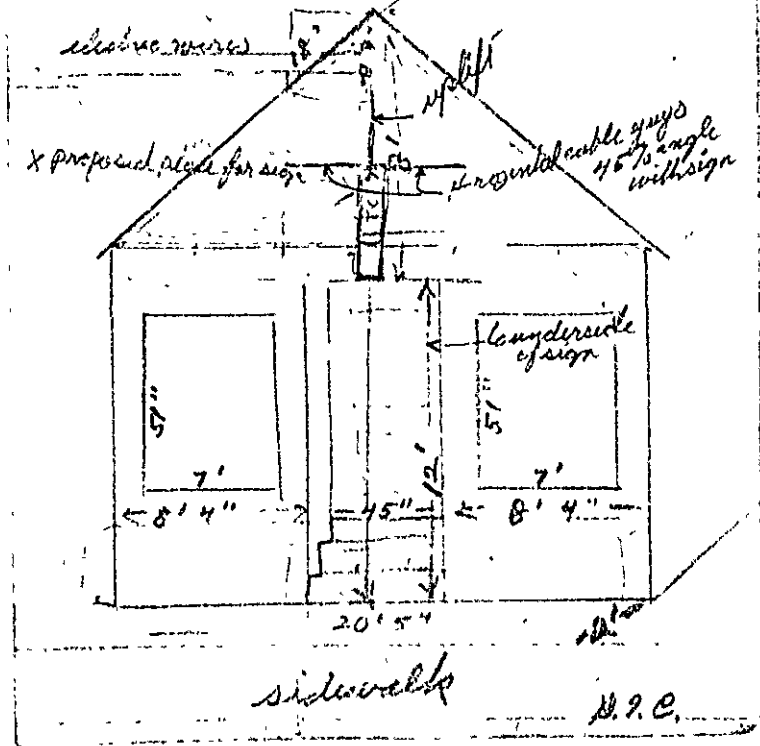 electric wires
8'
8'
uplift
x proposed place for sign
5'
4 horizontal cable guys
45% angle
with sign
to underside
of sign
51"
51"
7'
7'
8' 4"
45"
12'
8' 4"
20' 5"
sidewalk